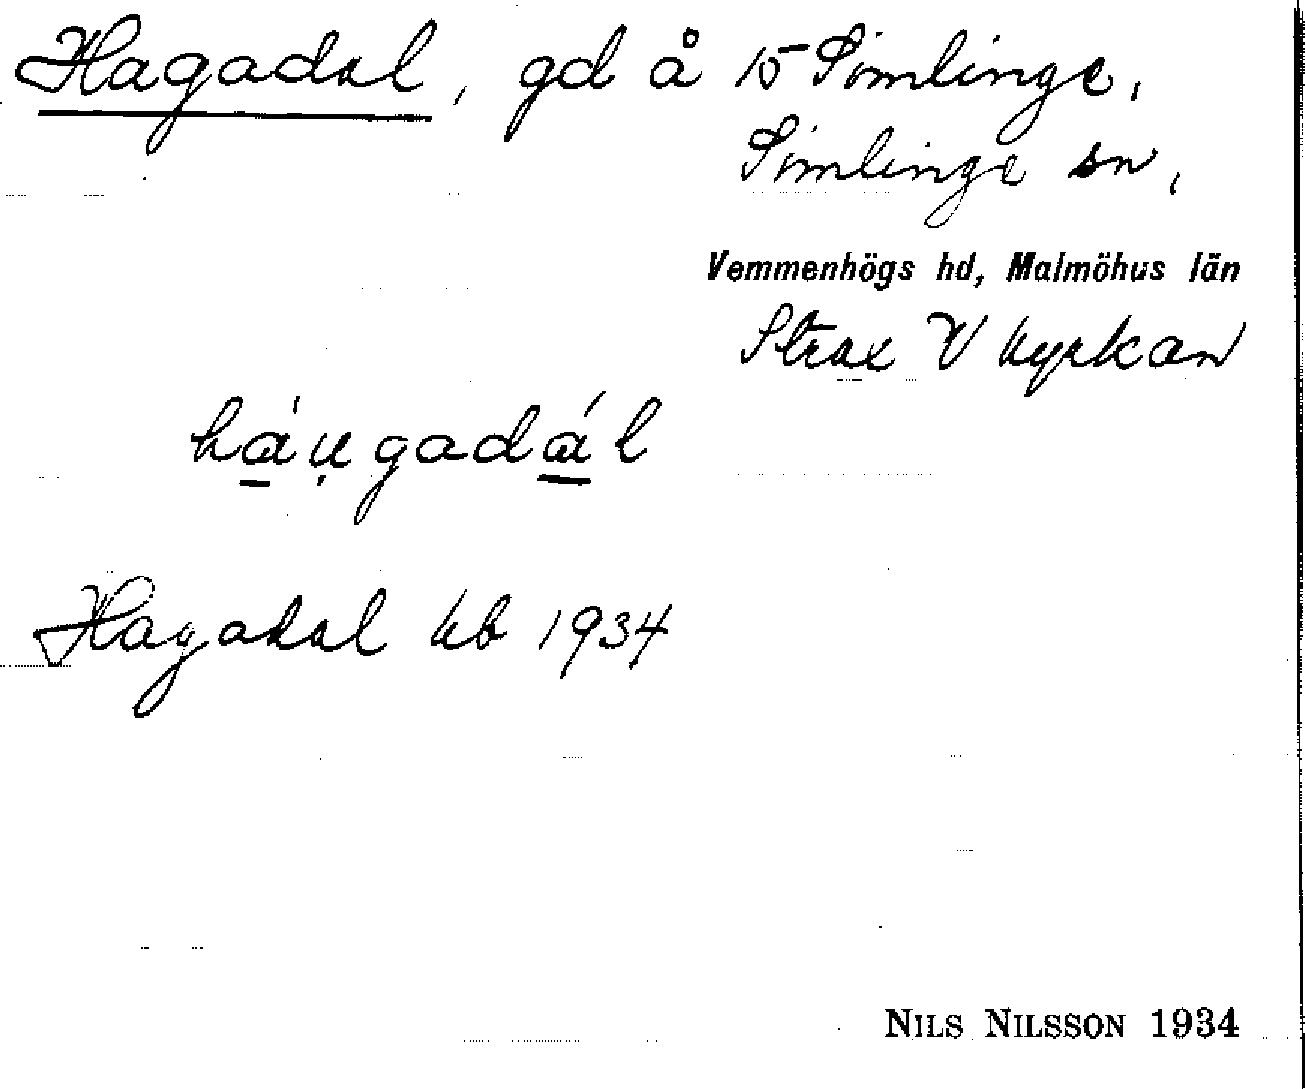 Hagadal, gd å 15 Simlinge,
Simlinge sn,
Vemmenhögs hd, Malmöhus län
Strax V kyrkan
hά̱u̯gadά̱l
Hagadal kb 1934
NILS NILSSON 1934